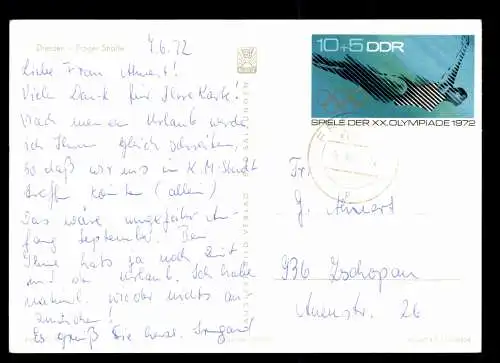 Dresden – Prager Straße
7.6.72
Liebe Frau Ahnert!
Vielen Dank für Ihre Karte!
Nach meinem Urlaub werde
ich Ihnen gleich schreiben,
so daß wir uns in K. M. Stadt
treffen könnten (allein)
Das wäre ungefähr An-
fang September. Bei
Ihnen hats ja noch Zeit
mit dem Urlaub. Ich habe
natürl. wieder nichts an-
zuziehen!
Es grüßt Sie herzl. Irmgard
10+5 DDR
SPIELE DER XX. OLYMPIADE 1972
Fr.
G. Ahnert
936 Zschopau
Auenstr. 26